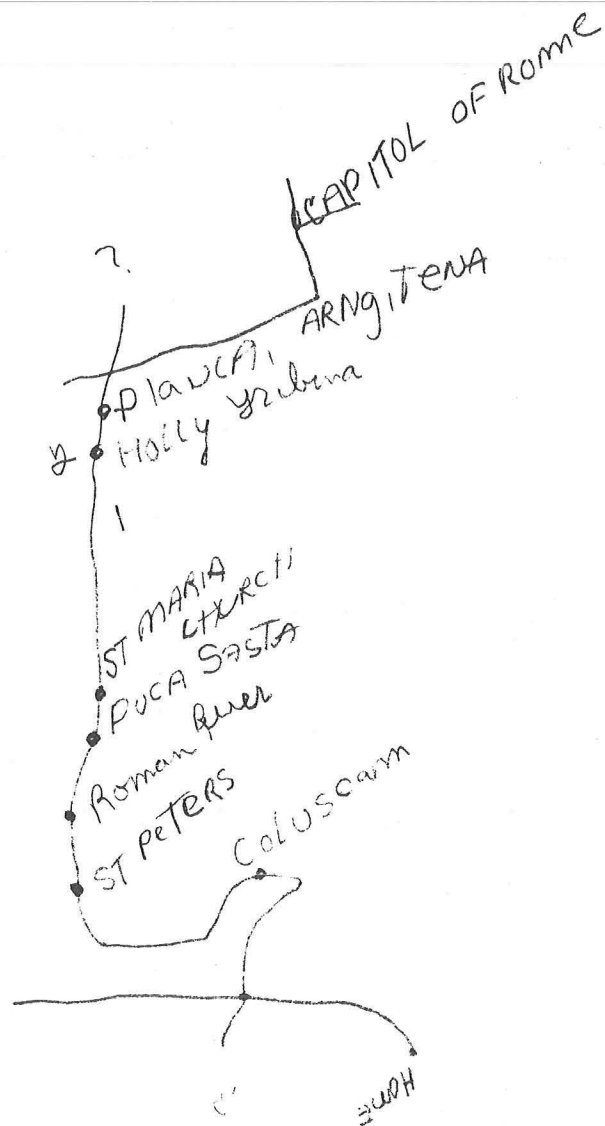 CAPITOL OF ROME
?
ARNG, TENA
PIAUCA,
HOLLY
y
1
ST MARIA
CHURCH
PUCA SASTA
Roman River
ST PETERS
COLUSCAM
?
HOME